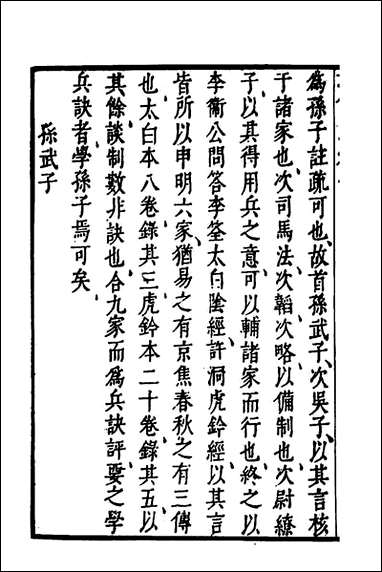 爲孫子註疏可也、故首孫武子、次吳子、以其言核
于諸家也、次司馬法、次韜、次略、以備制也、次尉繚
子、以其得用兵之意、可以輔諸家而行也、終之以
李衞公問答、李筌太白陰經、許洞虎鈐經、以其言
皆所以申明六家、猶易之有京焦、春秋之有三傳
也、太白本八卷、錄其三、虎鈐本二十卷、錄其五、以
其餘談制數、非訣也、合九家而爲兵訣評、要之學
兵訣者、學孫子焉可矣、
孫武子